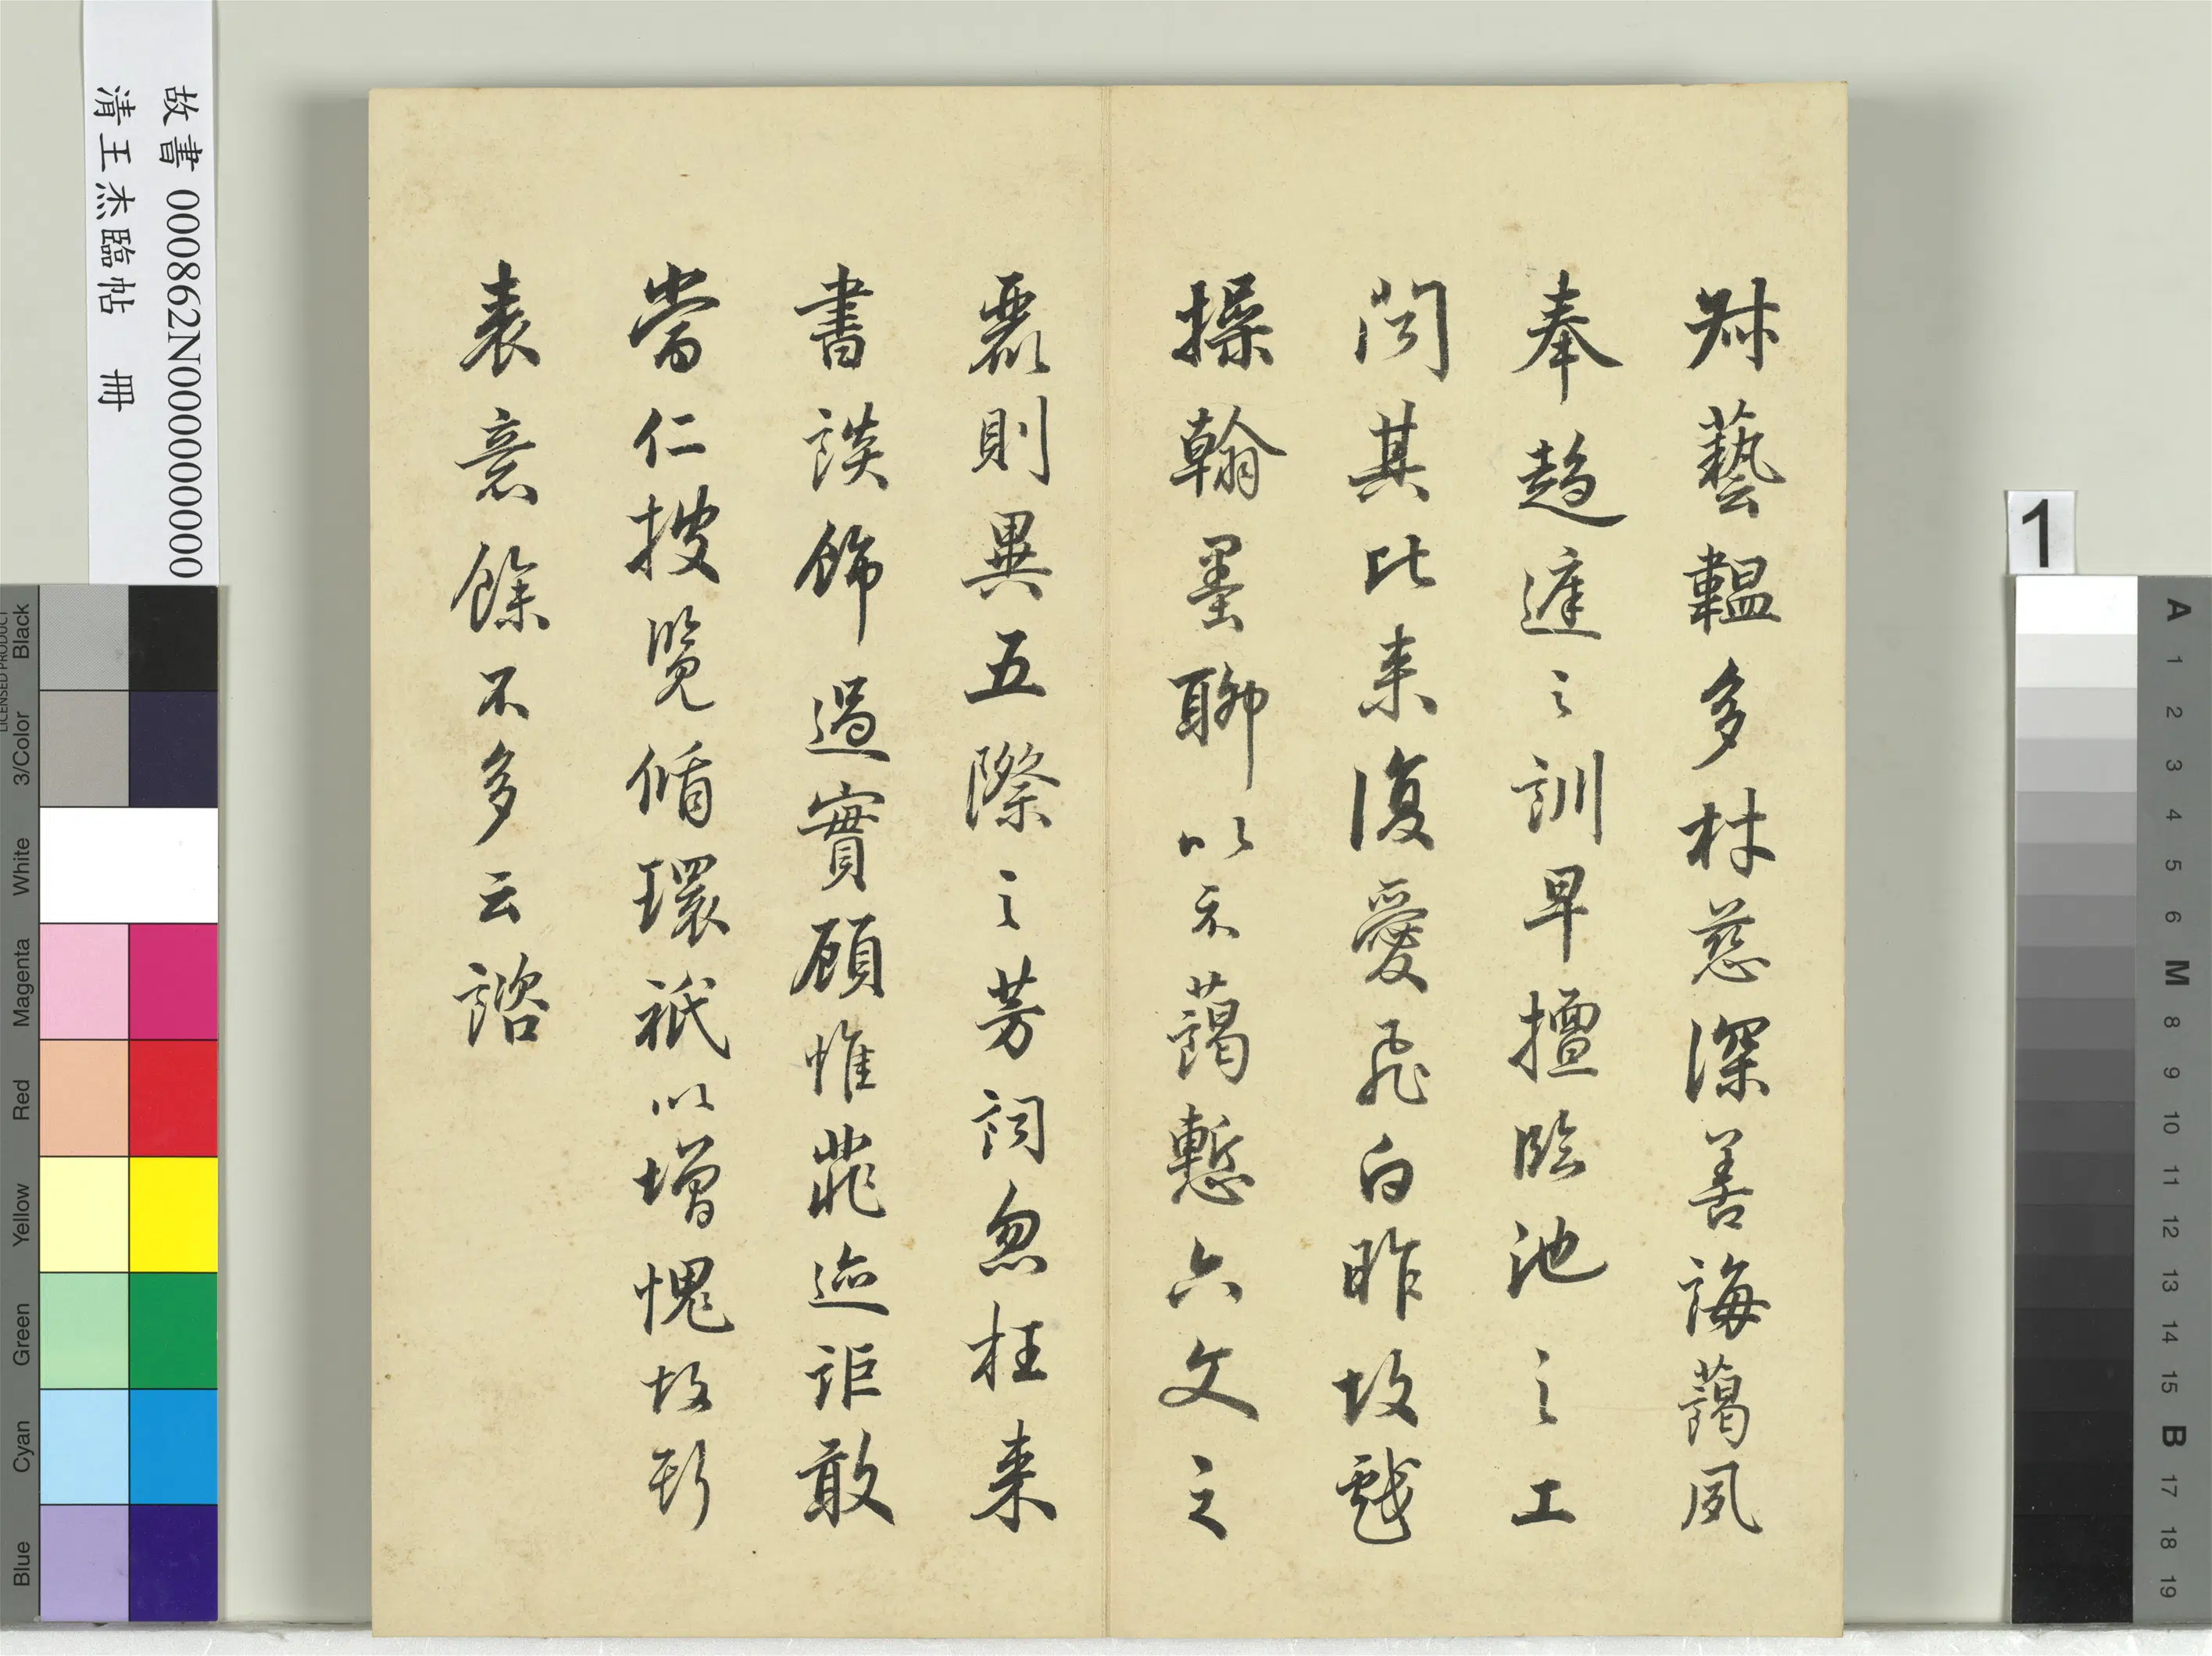 叔藝韞多材慈深善誨藹夙
奉趨庭之訓早擅臨池之工
問其比来復愛飛白昨故戲
操翰墨聊以示藹慙六文之
麗則異五際之芳詞忽枉来
書談飾過實顧惟菲迹詎敢
當仁披覽循環祇以增愧故斯
表意餘不多云諮
故書 000862N000000000
清王杰臨帖 冊
1
Black
3/Color
White
Magenta
Red
Yellow
Green
Cyan
Blue
LICENSED PRODUCT
A
1
2
3
4
5
6
M
8
9
10
11
12
13
14
15
B
17
18
19